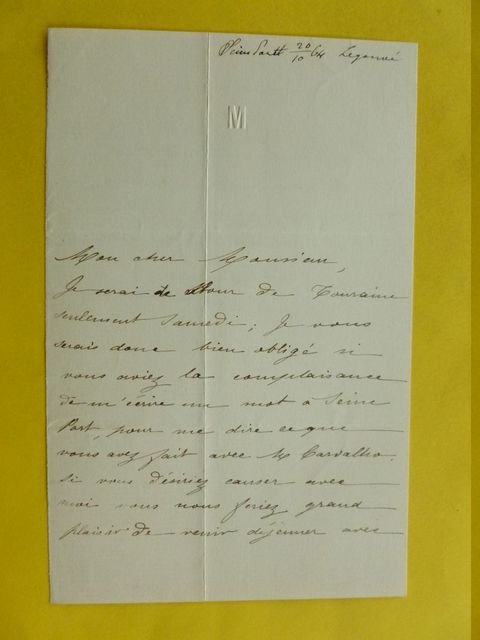 Seine Port 20/10 64 Legouvé
M
Mon cher Monsieur,
Je serai de retour de Touraine
seulement Samedi ; Je vous
serais donc bien obligé si
vous aviez la complaisance
de m'écrire un mot à Seine
Port, pour me dire ce que
vous avez fait avec M Carvalho.
Si vous désiriez causer avec
moi vous nous feriez grand
plaisir de venir déjeuner avec